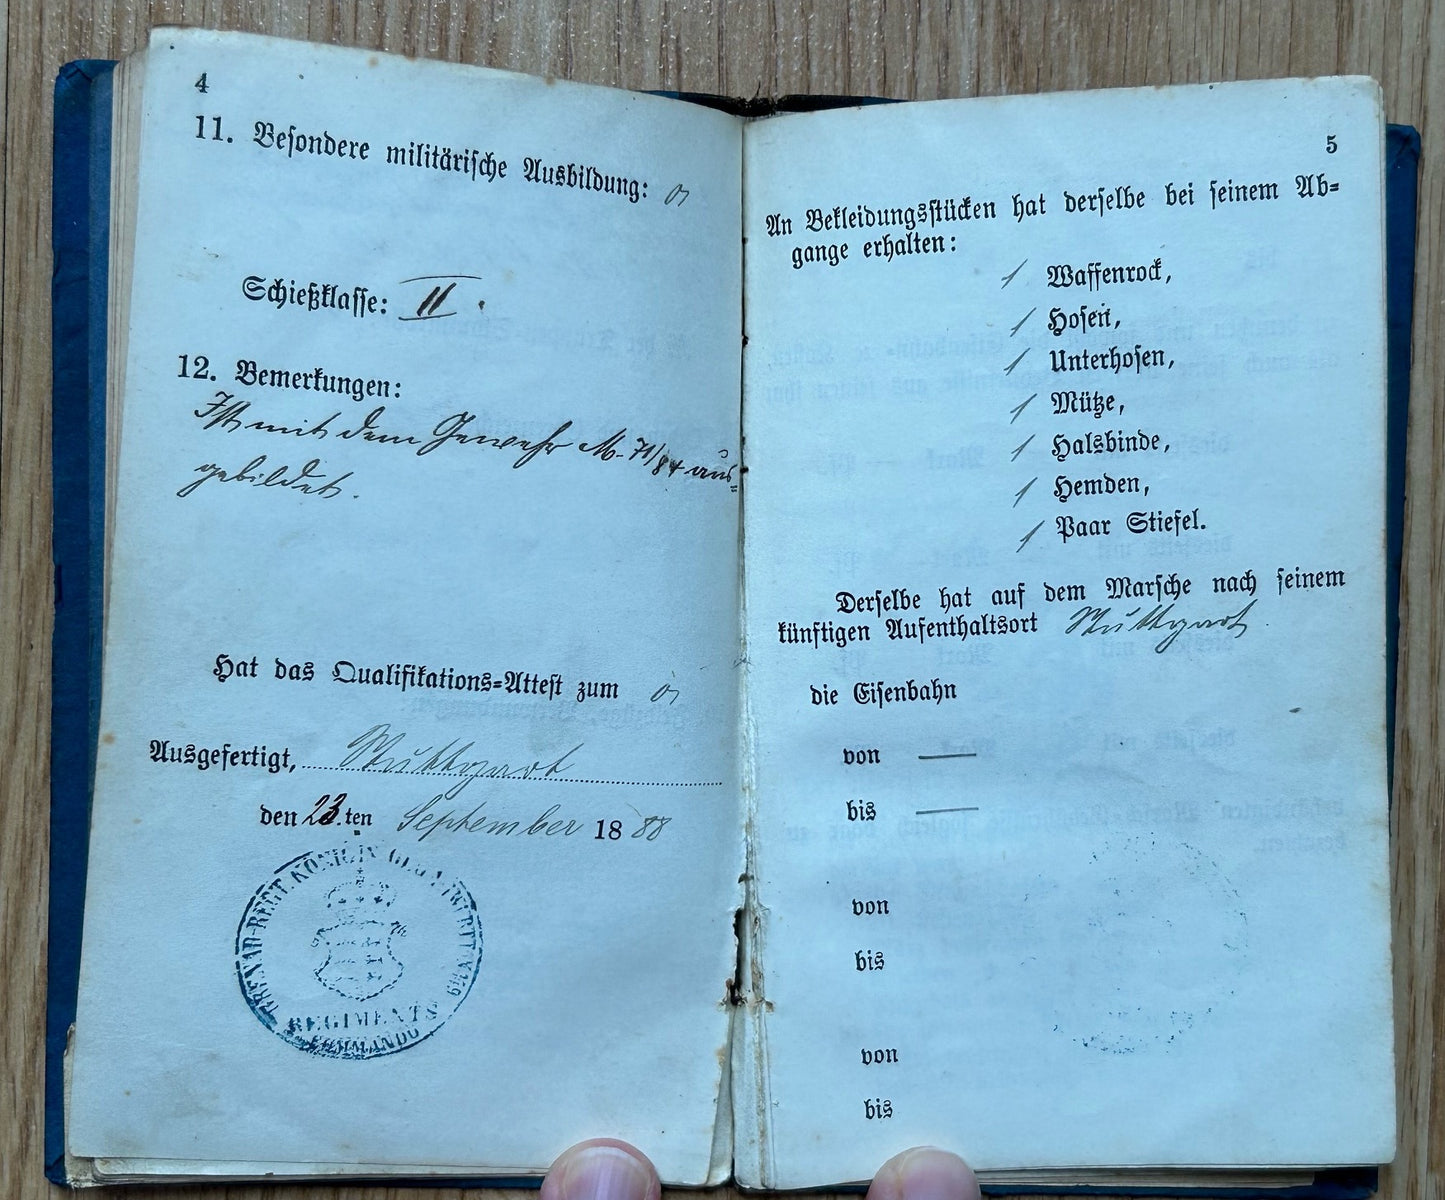 4
11. Besondere militärische Ausbildung:
Schießklasse: II.
12. Bemerkungen:
Ist mit dem Gewehr M. 71/84 aus=
gebildet.
Hat das Qualifikations=Attest zum
Ausgefertigt, Stuttgart
den 23.ten September 1888
GRENAD-REGT. KÖNIGIN OLGA (WÜRTT.) 119
REGIMENTS
COMMANDO
5
An Bekleidungsstücken hat derselbe bei seinem Ab=
gange erhalten:
1 Waffenrock,
1 Hosen,
1 Unterhosen,
1 Mütze,
1 Halsbinde,
1 Hemden,
1 Paar Stiefel.
Derselbe hat auf dem Marsche nach seinem
künftigen Aufenthaltsort Stuttgart.
die Eisenbahn
von —
bis —
von
bis
von
bis